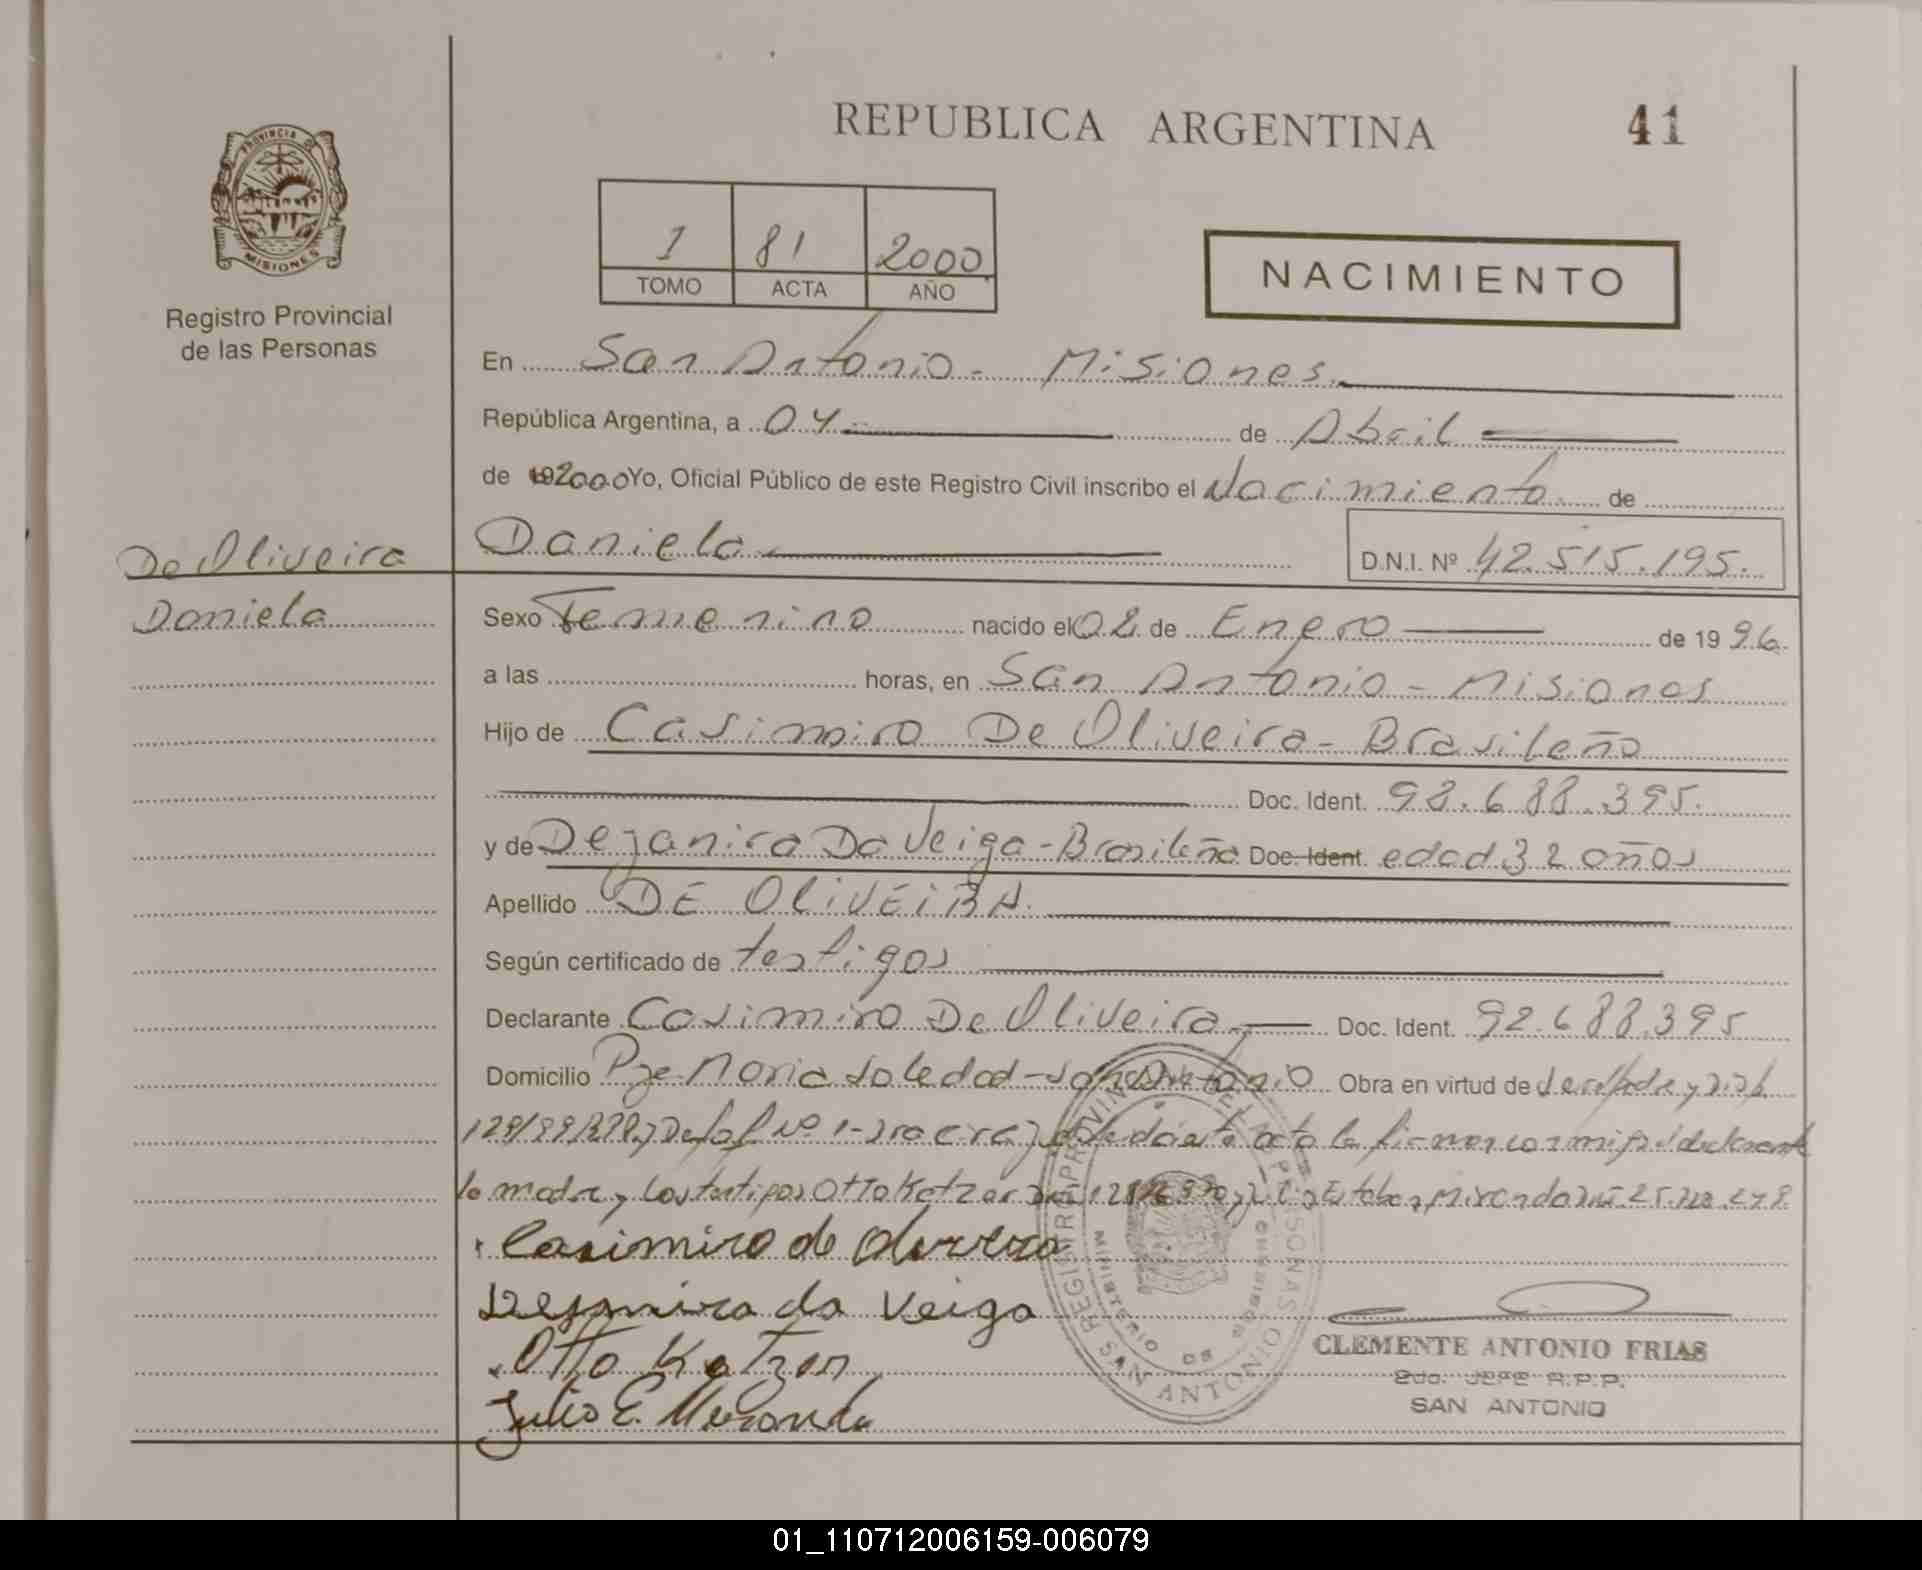 REPUBLICA ARGENTINA
41
PROVINCIA
MISIONES
Registro Provincial
de las Personas
1 81 2000
TOMO ACTA AÑO
NACIMIENTO
En San Antonio - Misiones
República Argentina, a 04 de Abril
de 192000 Yo, Oficial Público de este Registro Civil inscribo el Nacimiento de
De Oliveira
Daniela
Daniela D.N.I. Nº 42.515.195.
Sexo Femenino nacido el 02 de Enero de 19 96
a las horas, en San Antonio - Misiones
Hijo de Casimiro De Oliveira - Brasileño
Doc. Ident. 92.688.395.
y de Dejanira Da Veiga - Brasileña Doc. Ident. edad 32 años
Apellido DE OLIVEIRA
Según certificado de testigos
Declarante Casimiro De Oliveira Doc. Ident. 92.688.395
Domicilio Pje Maria Soledad - San Antonio Obra en virtud de
129/99 Nº 1 acta la firman el declarante
la madre y los testigos Otto Katzer Julio Esteban Miranda
Casimiro de Oliveira
Dejanira da Veiga
Otto Katzer
Julio E. Miranda
REGISTRO PROVINCIAL DE LAS PERSONAS
MINISTERIO DE GOBIERNO
SAN ANTONIO
CLEMENTE ANTONIO FRIAS
2do. JEFE R.P.P.
SAN ANTONIO
01_110712006159-006079